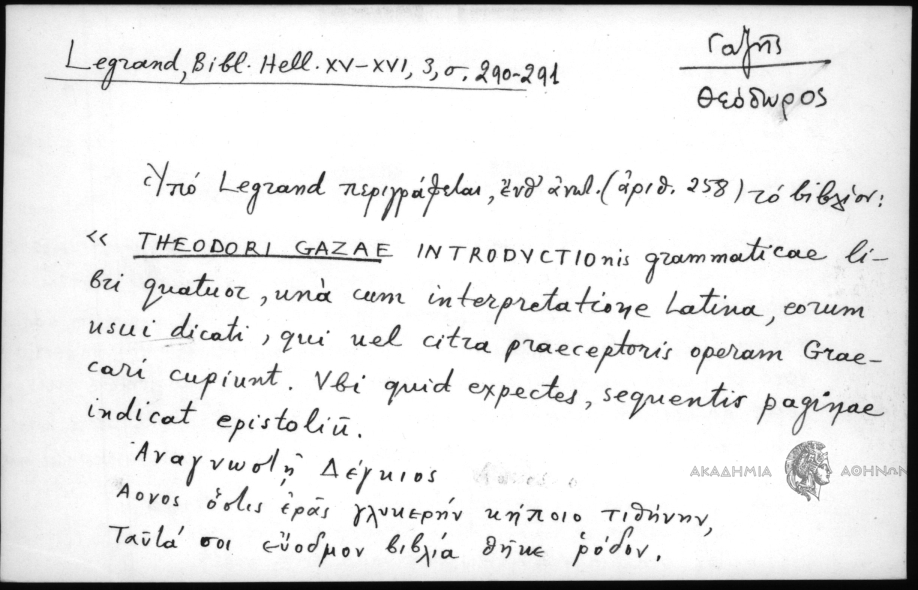 Legrand, Bibl. Hell. XV-XVI, 3, σ. 290-291
Γαζῆς
Θεόδωρος
Ὑπό Legrand περιγράφεται, ἔνθ' ἀνωτ. (ἀριθ. 258) τό βιβλίον:
« THEODORI GAZAE INTRODVCTIOnis grammaticae li-
bri quatuor, unà cum interpretatione Latina, eorum
usui dicati, qui uel citra praeceptoris operam Grae-
cari cupiunt. Vbi quid expectes, sequentis paginae
indicat epistoliū.
Ἀναγνωστῇ Δέγκιος
Αονος ὅστις ἐρᾷς γλυκερήν κήποιο τιθήνην,
Ταῦτά σοι εὔοδμον βιβλία θῆκε ῥόδον.
ΑΚΑΔΗΜΙΑ ΑΘΗΝΩΝ